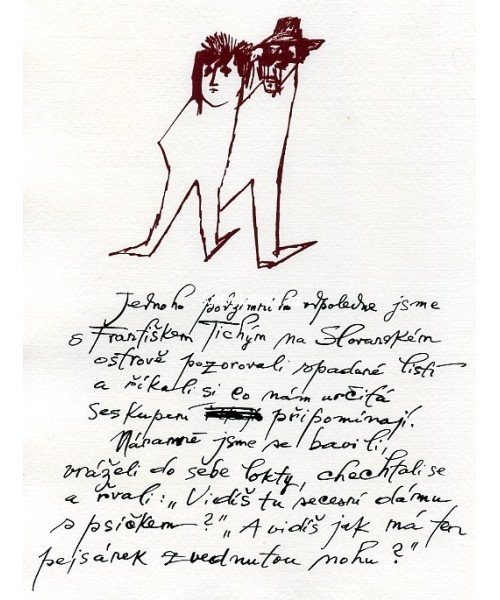 Jednoho podzimního odpoledne jsme
s Františkem Tichým na Slovanském
ostrově pozorovali spadané listí
a říkali si co nám určitá
seskupení připomínají.
Náramně jsme se bavili,
vráželi do sebe lokty, chechtali se
a řvali: „Vidíš tu secesní dámu
s psíčkem?" „A vidíš jak má ten
pejsánek zvednutou nohu?"